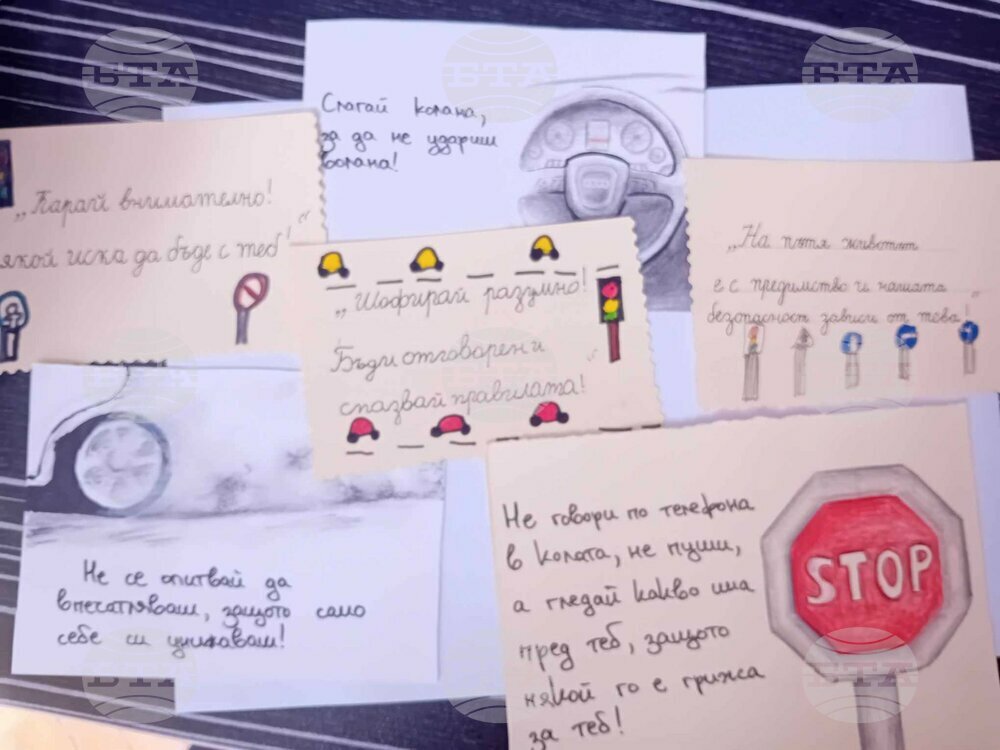 Слагай колана,
за да не удариш
волана!
„Карай внимателно!
някой иска да бъде с теб!"
„Шофирай разумно!
Бъди отговорен и
спазвай правилата!"
„На пътя животът
е с предимство и нашата
безопасност зависи от това!"
Не се опитвай да
впечатляваш, защото само
себе си унижаваш!
Не говори по телефона
в колата, не пуши,
а гледай какво има
пред теб, защото
някой го е грижа
за теб!
STOP
БТА
БТА
БТА
БТА
БТА
БТА
БТА
БТА
БТА